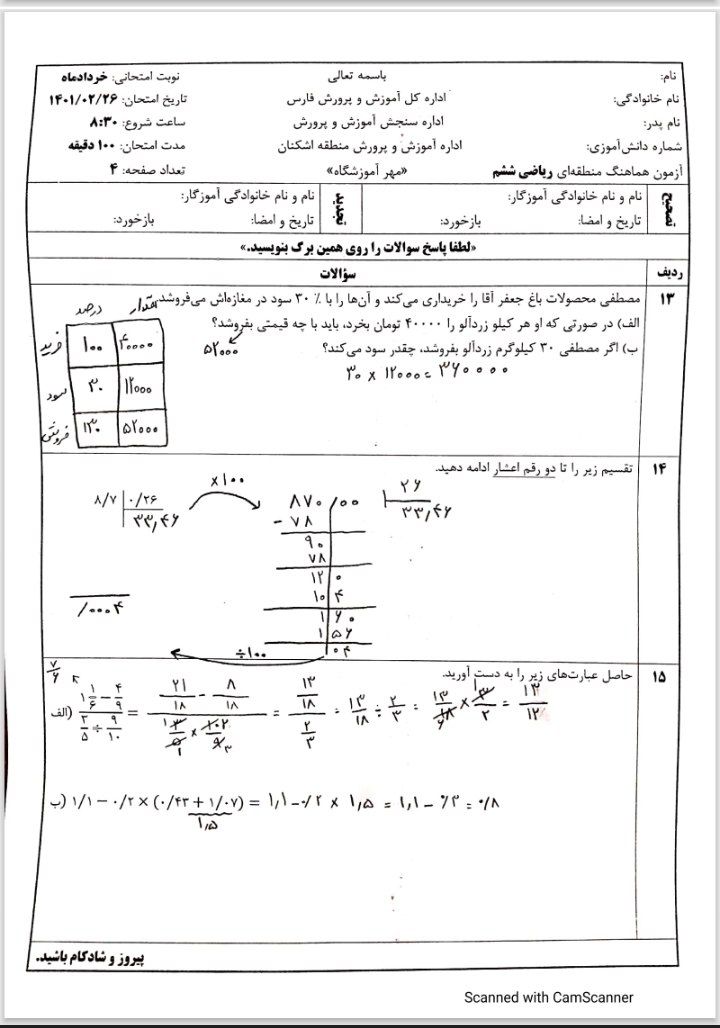 نام: باسمه تعالی نوبت امتحانی: خردادماه
نام خانوادگی: اداره کل آموزش و پرورش فارس تاریخ امتحان: ۱۴۰۱/۰۲/۲۶
نام پدر: اداره سنجش آموزش و پرورش ساعت شروع: ۸:۳۰
شماره دانش‌آموزی: اداره آموزش و پرورش منطقه اشکنان مدت امتحان: ۱۰۰ دقیقه
آزمون هماهنگ منطقه‌ای ریاضی ششم «مهر آموزشگاه» تعداد صفحه: ۴
تصحیح نام و نام خانوادگی آموزگار: تجدید نام و نام خانوادگی آموزگار:
تاریخ و امضا: بازخورد: تاریخ و امضا: بازخورد:
«لطفا پاسخ سوالات را روی همین برگ بنویسید.»
ردیف سؤالات
۱۳ مصطفی محصولات باغ جعفر آقا را خریداری می‌کند و آن‌ها را با ۳۰ ٪ سود در مغازه‌اش می‌فروشد.
الف) در صورتی که او هر کیلو زردآلو را ۴۰۰۰۰ تومان بخرد، باید با چه قیمتی بفروشد؟
۵۲۰۰۰
ب) اگر مصطفی ۳۰ کیلوگرم زردآلو بفروشد، چقدر سود می‌کند؟
۳۰ × ۱۲۰۰۰ = ۳۶۰۰۰۰
درصد مقدار
خرید ۱۰۰ ۴۰۰۰۰
سود ۳۰ ۱۲۰۰۰
فروش ۱۳۰ ۵۲۰۰۰
۱۴ تقسیم زیر را تا دو رقم اعشار ادامه دهید.
۸/۷ ۰/۲۶
۳۳,۴۶
×۱۰۰
۸۷۰/۰۰ ۲۶
۳۳,۴۶
- ۷۸
۹۰
۷۸
۱۲۰
۱۰۴
۱۶۰
۱۵۶
۰۴
÷۱۰۰
/۰۰۰۴
۱۵ حاصل عبارت‌های زیر را به دست آورید.
۷/۶
الف) (۱ ۱/۶ − ۴/۹) / (۳/۵ ÷ ۹/۱۰) = (۲۱/۱۸ − ۸/۱۸) / (۳/۵ × ۱۰/۹) = (۱۳/۱۸) / (۲/۳) = ۱۳/۱۸ ÷ ۲/۳ = ۱۳/۱۸ × ۳/۲ = ۱۳/۱۲
ب) ۱/۱ − ۰/۲ × (۰/۴۳ + ۱/۰۷) = ۱,۱ − ۰/۲ × ۱,۵ = ۱,۱ − ۰/۳ = ۰/۸
۱,۵
پیروز و شادکام باشید.
Scanned with CamScanner